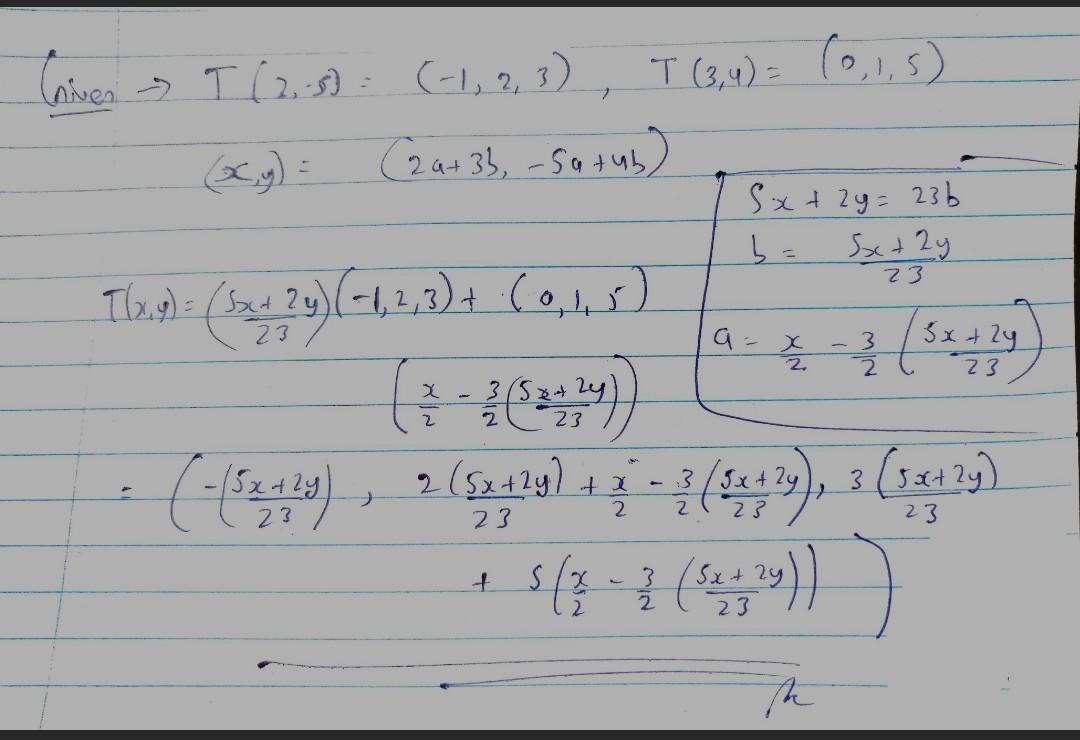 Given → T(2,-5) = (-1, 2, 3) , T(3,4) = (0,1,5)
(x,y) = (2a+3b, -5a+4b)
5x + 2y = 23b
b = (5x + 2y)/23
a = x/2 - 3/2 ((5x+2y)/23)
T(x,y) = ((5x+2y)/23)(-1,2,3) + (0,1,5)
(x/2 - 3/2((5x+2y)/23))
= (-((5x+2y)/23) , 2(5x+2y)/23 + x/2 - 3/2((5x+2y)/23), 3(5x+2y)/23
+ 5(x/2 - 3/2 ((5x+2y)/23)) )